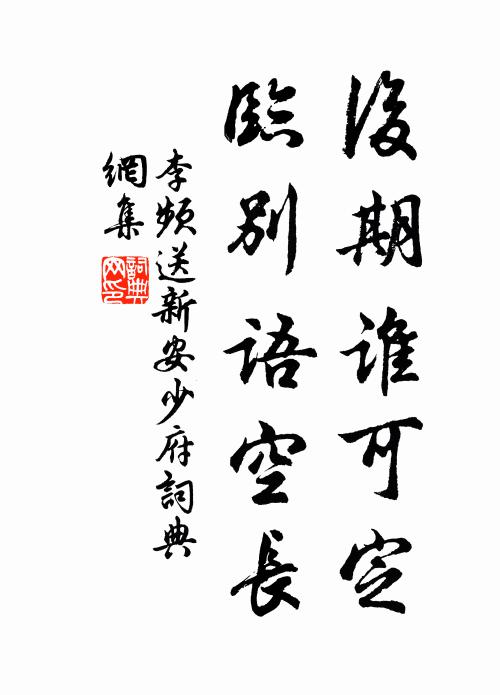 後期誰可定
臨別語空長
李頻送新安少府詞典
網集
詞典
網印